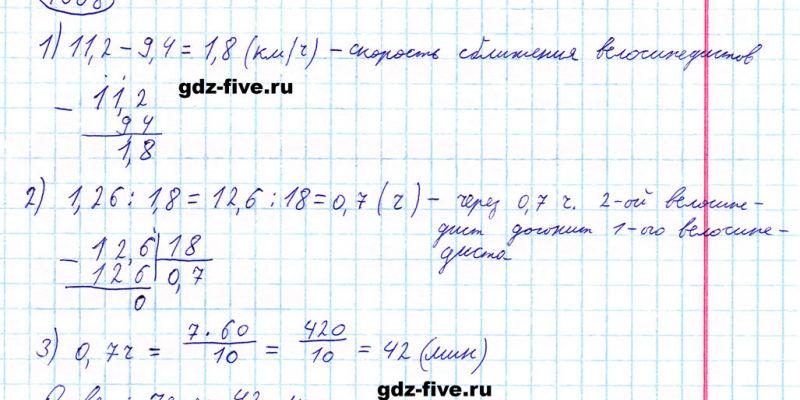 1) 11,2 – 9,4 = 1,8 (км/ч) – скорость сближения велосипедистов
gdz-five.ru
– 11,2
9 4
1,8
2) 1,26 : 1,8 = 12,6 : 18 = 0,7 (ч) – через 0,7 ч. 2-ой велосипе-
дист догонит 1-ого велосипе-
диста
– 12,6 | 18
12 6 | 0,7
0
3) 0,7ч = 7·60/10 = 420/10 = 42 (мин)
gdz-five.ru